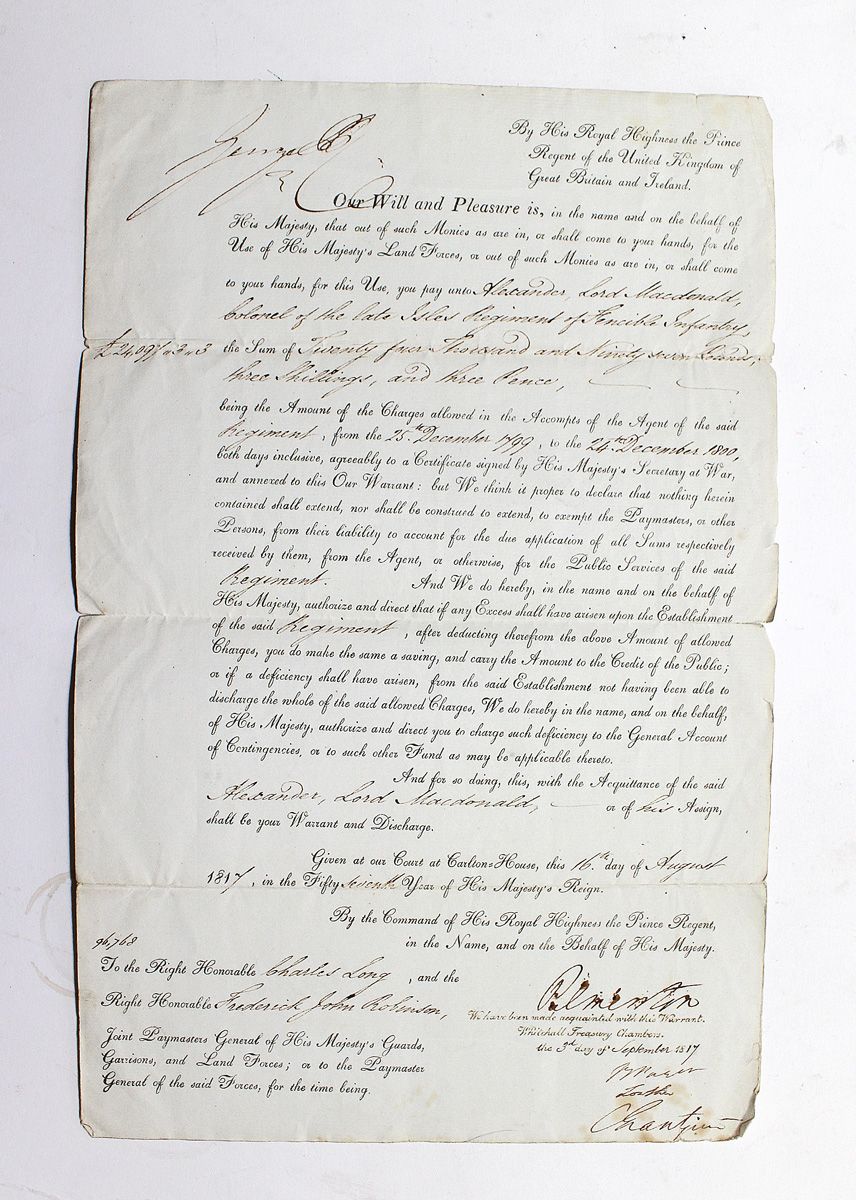 George P R
By His Royal Highness the Prince
Regent of the United Kingdom of
Great Britain and Ireland.
Our Will and Pleasure is, in the name and on the behalf of
His Majesty, that out of such Monies as are in, or shall come to your hands, for the
Use of His Majesty's Land Forces, or out of such Monies as are in, or shall come
to your hands, for this Use, you pay unto Alexander, Lord Macdonald,
Colonel of the late Isles Regiment of Fencible Infantry,
£24,097 " 3 " 3 the Sum of Twenty four Thousand and Ninety seven Pounds,
three Shillings, and three Pence,
being the Amount of the Charges allowed in the Accompts of the Agent of the said
Regiment, from the 25th December 1799, to the 24th December 1800,
both days inclusive, agreeably to a Certificate signed by His Majesty's Secretary at War,
and annexed to this Our Warrant: but We think it proper to declare that nothing herein
contained shall extend, nor shall be construed to extend, to exempt the Paymasters, or other
Persons, from their liability to account for the due application of all Sums respectively
received by them, from the Agent, or otherwise, for the Public Services of the said
Regiment. And We do hereby, in the name and on the behalf of
His Majesty, authorize and direct that if any Excess shall have arisen upon the Establishment
of the said Regiment, after deducting therefrom the above Amount of allowed
Charges, you do make the same a saving, and carry the Amount to the Credit of the Public;
or if a deficiency shall have arisen, from the said Establishment not having been able to
discharge the whole of the said allowed Charges, We do hereby in the name, and on the behalf,
of His Majesty, authorize and direct you to charge such deficiency to the General Account
of Contingencies, or to such other Fund as may be applicable thereto.
And for so doing, this, with the Acquittance of the said
Alexander, Lord Macdonald, or of his Assign,
shall be your Warrant and Discharge.
Given at our Court at Carlton=House, this 16th day of August
1817, in the Fifty seventh Year of His Majesty's Reign.
By the Command of His Royal Highness the Prince Regent,
in the Name, and on the Behalf of His Majesty.
96,768
To the Right Honorable Charles Long, and the
Right Honorable Frederick John Robinson,
Joint Paymasters General of His Majesty's Guards,
Garrisons, and Land Forces; or to the Paymaster
General of the said Forces, for the time being.
We have been made acquainted with this Warrant.
Whitehall Treasury Chambers.
the 3d day of September 1817
Lowther